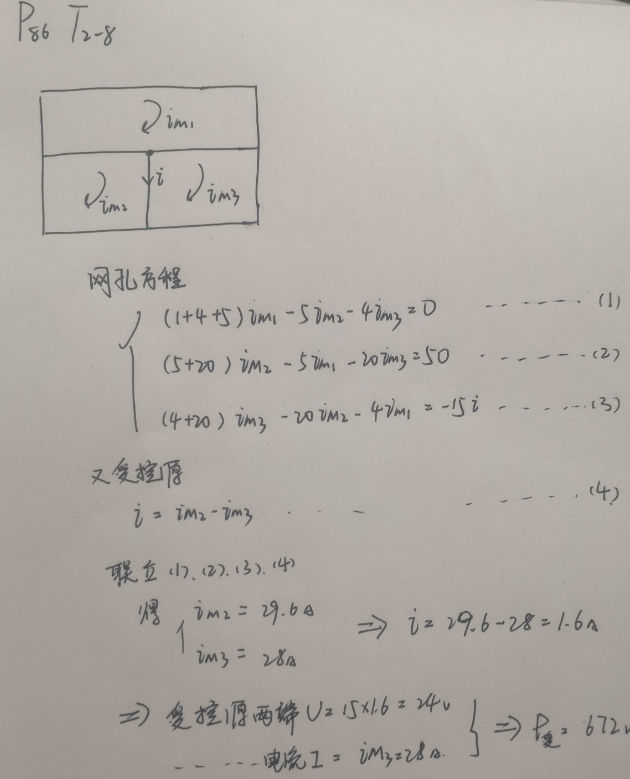 P86 T2-8
im1
im2
i
im3
网孔方程
(1+4+5)im1-5im2-4im3=0 ------- (1)
(5+20)im2-5im1-20im3=50 ------- (2)
(4+20)im3-20im2-4im1=-15i ------- (3)
又受控源
i=im2-im3 ------- (4)
联立(1).(2).(3).(4)
得 im2=29.6A
im3=28A
⇒ i=29.6-28=1.6A
⇒ 受控源两端U=15×1.6=24v
------电流I=im3=28A.
⇒ P受=672